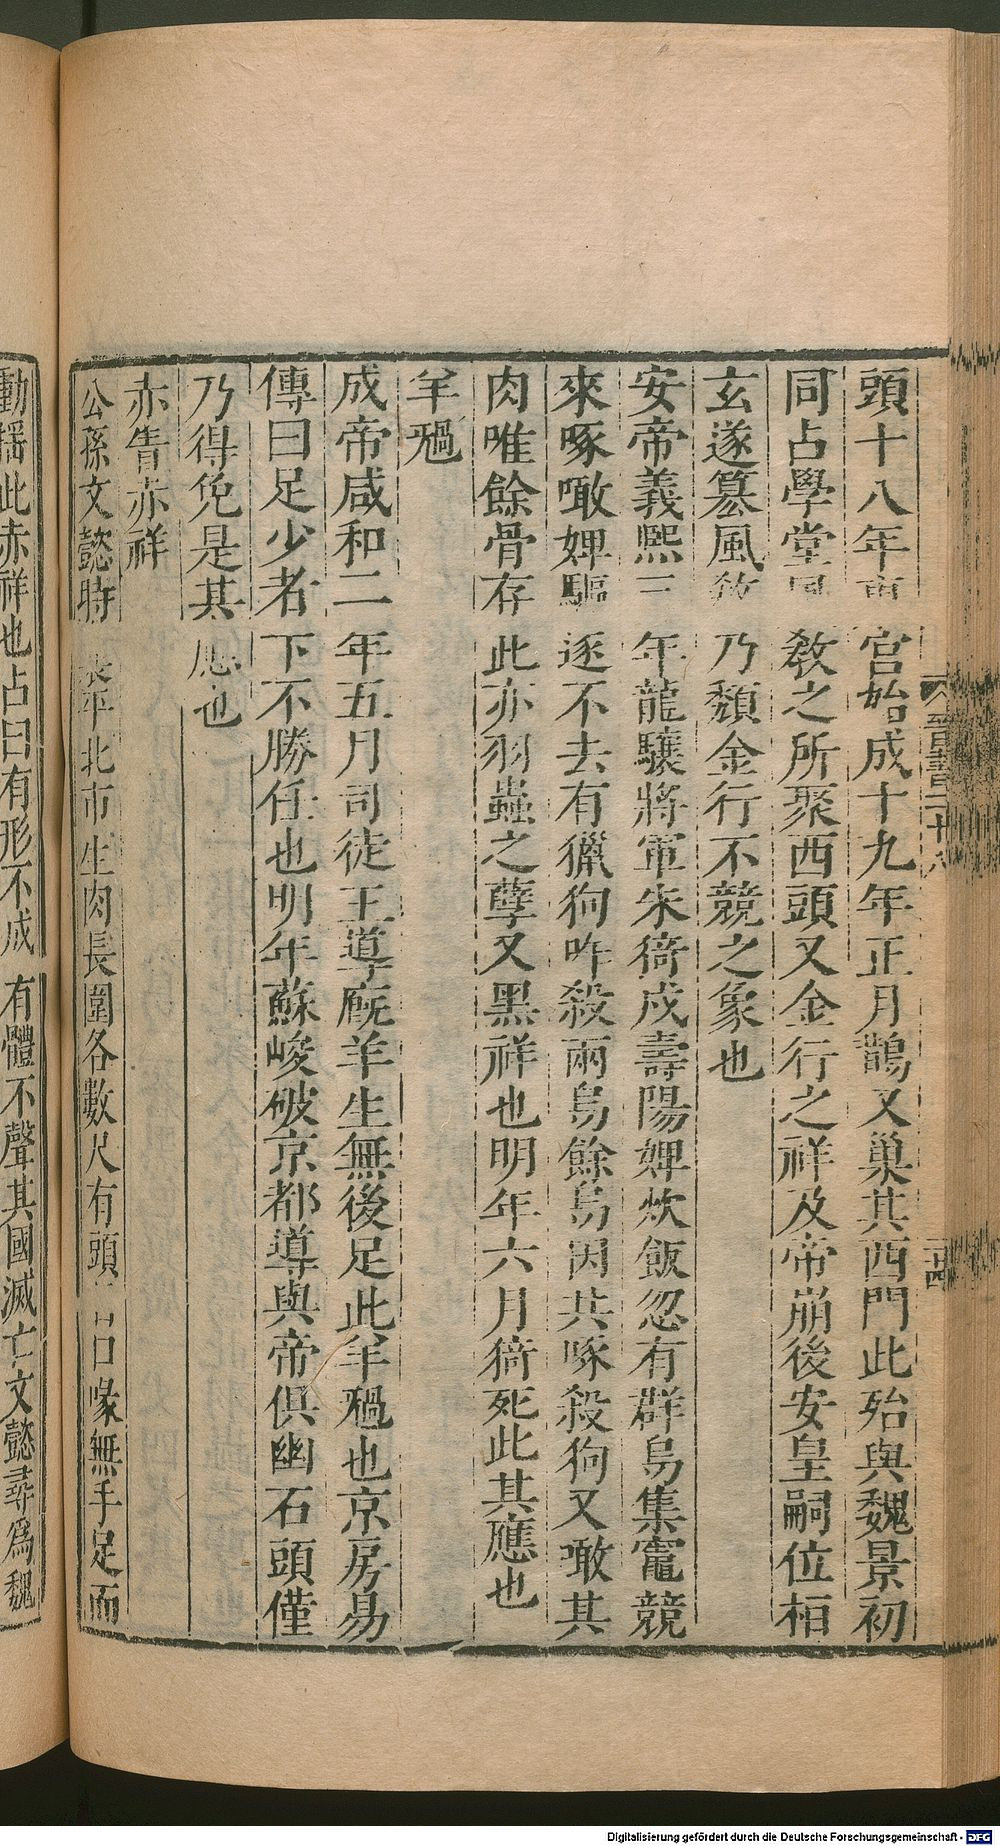 頭十八年東宮始成十九年正月鵲又巢其西門此殆與魏景初
同占學堂風敎之所聚西頭又金行之祥及帝崩後安皇嗣位桓
玄遂篡風敎乃頽金行不競之象也
安帝義熙三年龍驤將軍朱猗戍壽陽婢炊飯忽有群烏集竈競
來啄噉婢驅逐不去有獵狗咋殺兩烏餘烏因共啄殺狗又噉其
肉唯餘骨存此亦羽蟲之孽又黑祥也明年六月猗死此其應也
羊禍
成帝咸和二年五月司徒王導廐羊生無後足此羊禍也京房易
傳曰足少者下不勝任也明年蘇峻破京都導與帝俱幽石頭僅
乃得免是其應也
赤眚赤祥
公孫文懿時襄平北市生肉長圍各數尺有頭目口喙無手足而
動搖此赤祥也占曰有形不成有體不聲其國滅亡文懿尋爲魏
晉書二十八
二十四
Digitalisierung gefördert durch die Deutsche Forschungsgemeinschaft - DFG